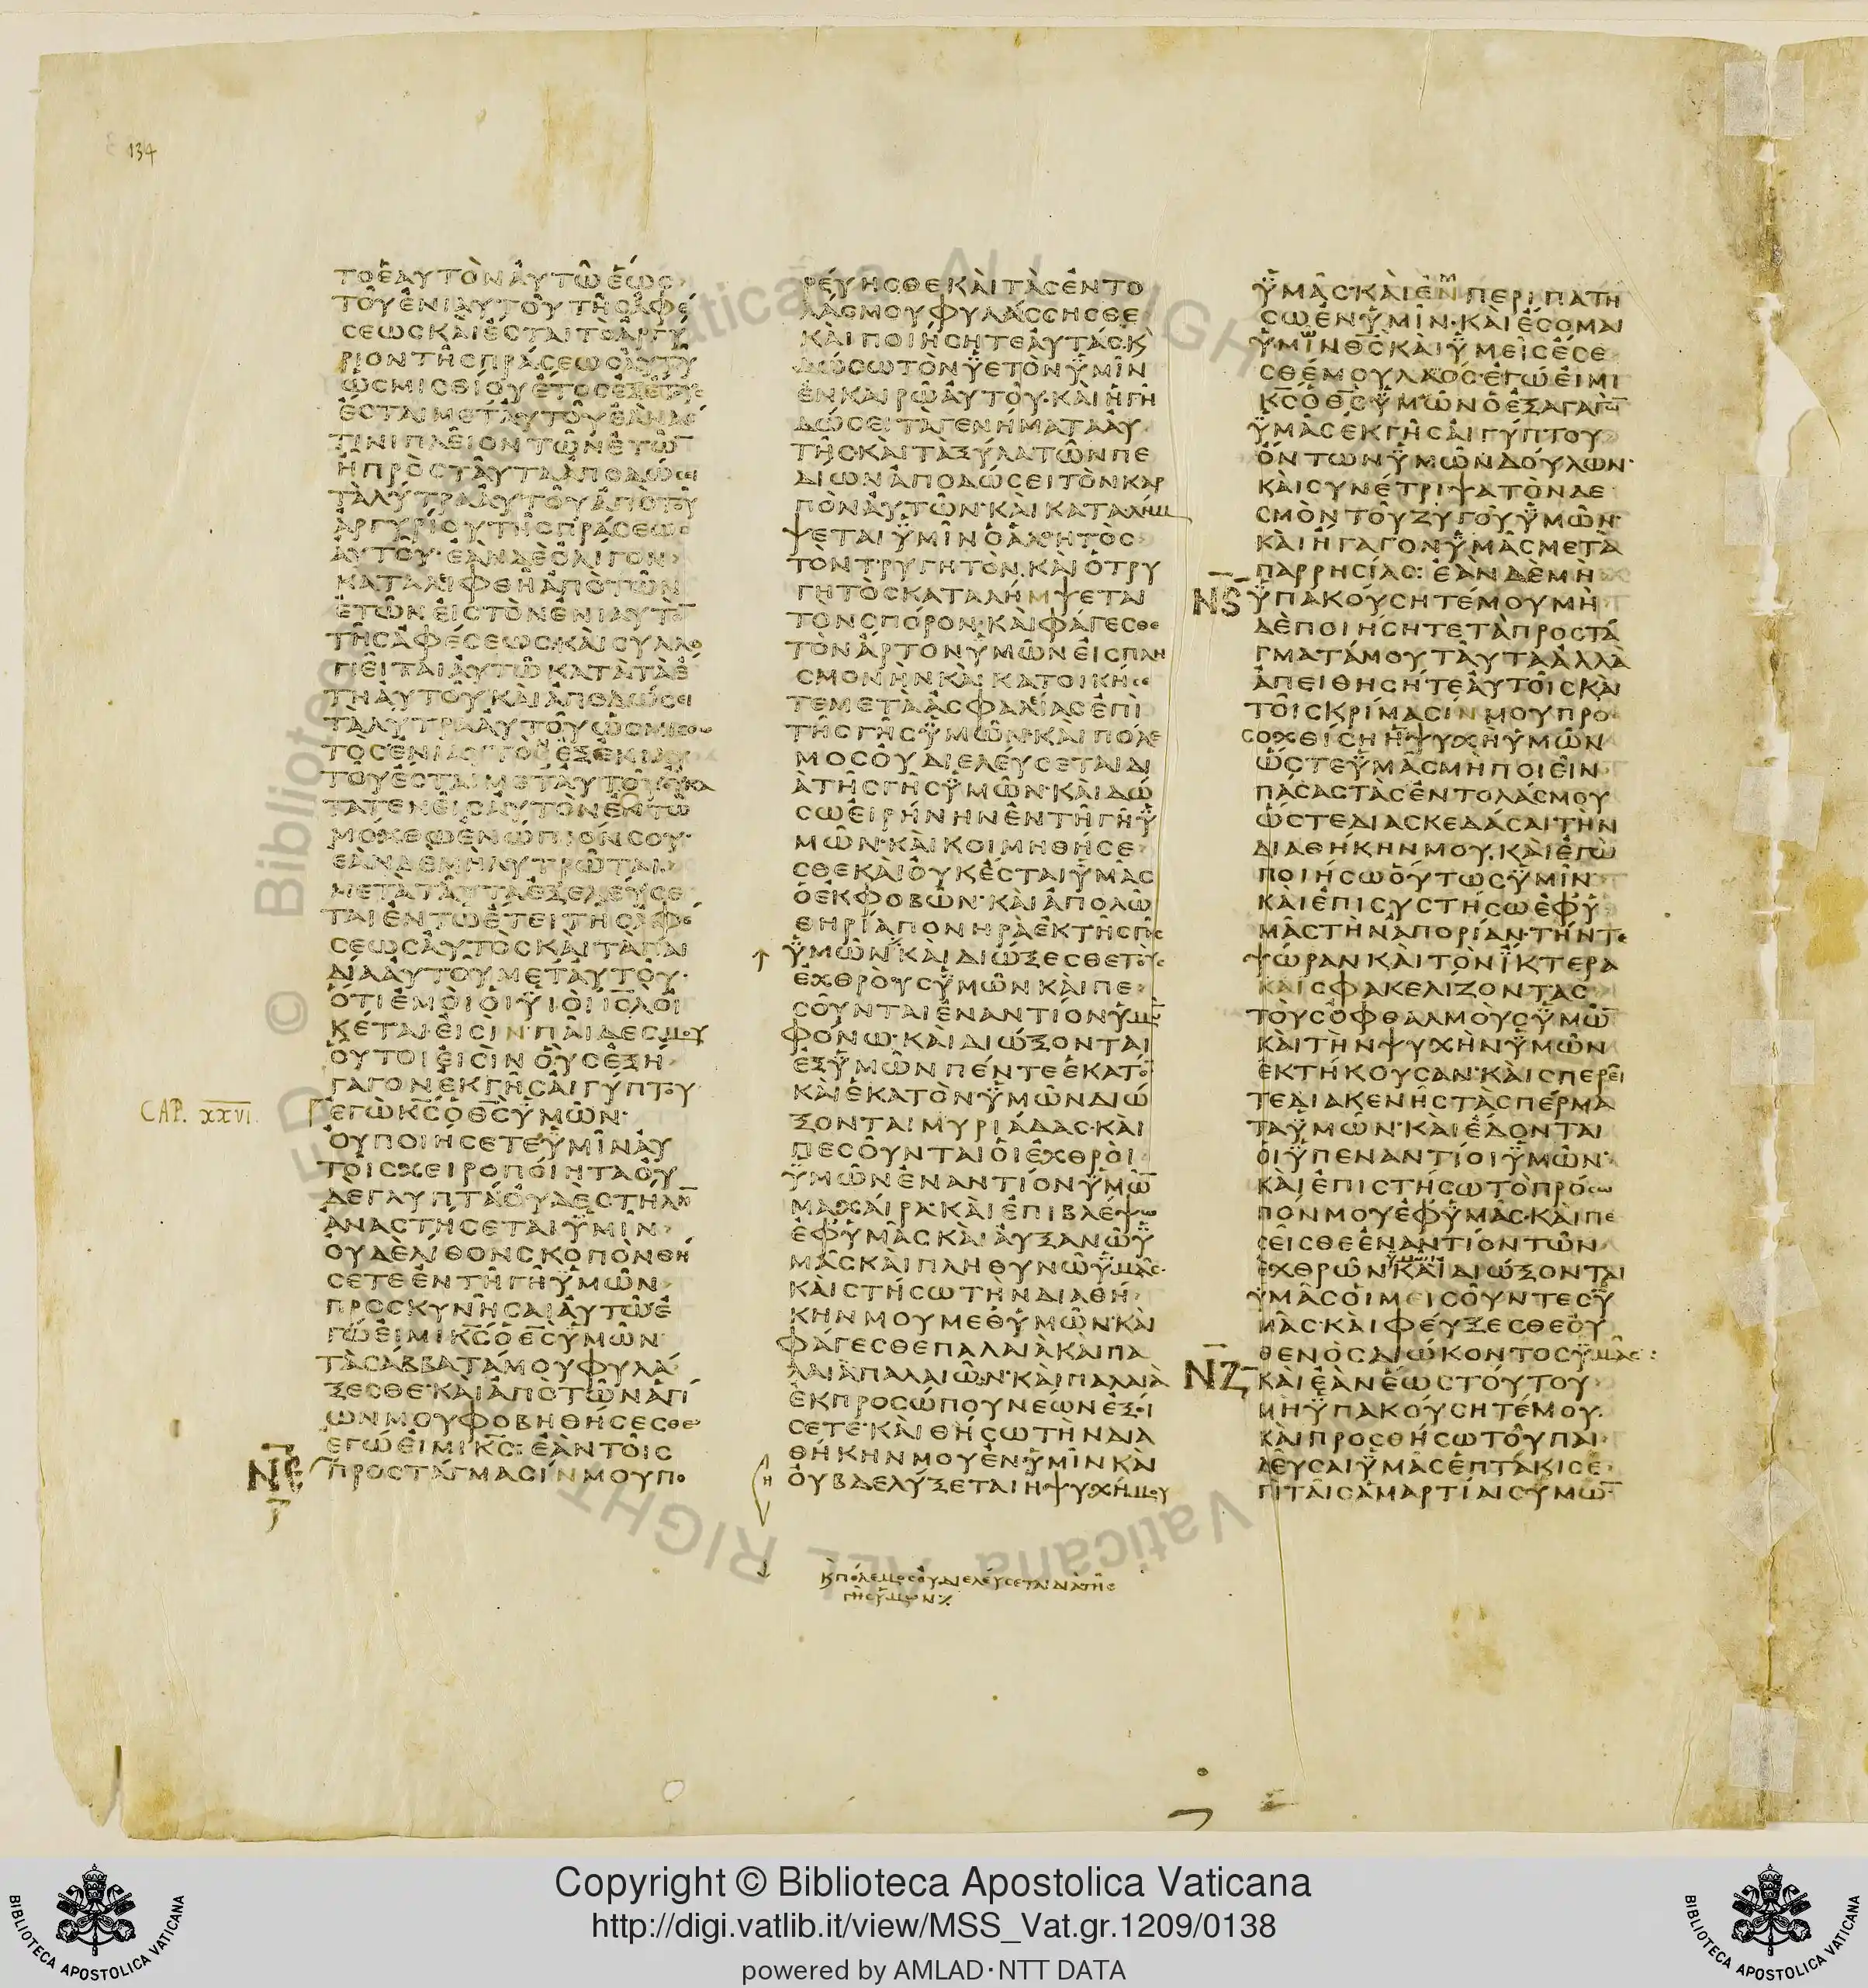 134
ΤΟΕΑΥΤΟΝΑΥΤΩΕΩΣ
ΤΟΥΕΝΙΑΥΤΟΥΤΗΣΑΦΕ
ΣΕΩΣΚΑΙΕΣΤΑΙΤΟΑΡΓΥ
ΡΙΟΝΤΗΣΠΡΑΣΕΩΣΑΥΤΟΥ
ΩΣΜΙΣΘΙΟΥΕΤΟΣΕΞΕΤΟΥΣ
ΕΣΤΑΙΜΕΤΑΥΤΟΥΕΑΝΔΕ
ΤΙΝΙΠΛΕΙΟΝΤΩΝΕΤΩ̅
ΗΠΡΟΣΤΑΥΤΑΑΠΟΔΩΣΕΙ
ΤΑΛΥΤΡΑΑΥΤΟΥΑΠΟΤΟΥ
ΑΡΓΥΡΙΟΥΤΗΣΠΡΑΣΕΩΣ
ΑΥΤΟΥ·ΕΑΝΔΕΟΛΙΓΟΝ
ΚΑΤΑΛΙΦΘΗΑΠΟΤΩΝ
ΕΤΩΝΕΙΣΤΟΝΕΝΙΑΥΤΟ̅
ΤΗΣΑΦΕΣΕΩΣ·ΚΑΙΣΥΛΛΟ
ΓΙΕΙΤΑΙΑΥΤΩΚΑΤΑΤΑΕ
ΤΗΑΥΤΟΥΚΑΙΑΠΟΔΩΣΕΙ
ΤΑΛΥΤΡΑΑΥΤΟΥΩΣΜΙΣΘΩ
ΤΟΣΕΝΙΑΥΤΟΝΕΞΕΝΙΑΥ
ΤΟΥΕΣΤΑΙΜΕΤΑΥΤΟΥΟΥΚΑ
ΤΑΤΕΝΕΙΣΑΥΤΟΝΕΝΤΩ
ΜΟΧΘΩΕΝΩΠΙΟΝΣΟΥ·
ΕΑΝΔΕΜΗΛΥΤΡΩΤΑΙ
ΜΕΤΑΤΑΥΤΑΕΞΕΛΕΥΣΕ
ΤΑΙΕΝΤΩΕΤΕΙΤΗΣΑΦΕ
ΣΕΩΣΑΥΤΟΣΚΑΙΤΑΠΑΙ
ΔΙΑΑΥΤΟΥΜΕΤΑΥΤΟΥ·
ΟΤΙΕΜΟΙΟΙΥΙΟΙΙΣΛΟΙ
ΚΕΤΑΙΕΙΣΙΝ·ΠΑΙΔΕΣΜΟΥ
ΟΥΤΟΙΕΙΣΙΝΟΥΣΕΞΗ
ΓΑΓΟΝΕΚΓΗΣΑΙΓΥΠΤΟΥ
CAP. XXVI.
ΕΓΩΚ̅Σ̅ΟΘ̅Σ̅ΥΜΩΝ·
ΟΥΠΟΙΗΣΕΤΕΥΜΙΝΑΥ
ΤΟΙΣΧΕΙΡΟΠΟΙΗΤΑΟΥ
ΔΕΓΛΥΠΤΑΟΥΔΕΣΤΗΛΗ̅
ΑΝΑΣΤΗΣΕΤΑΙΥΜΙΝ
ΟΥΔΕΛΙΘΟΝΣΚΟΠΟΝΘΗ
ΣΕΤΕΕΝΤΗΓΗΥΜΩΝ
ΠΡΟΣΚΥΝΗΣΑΙΑΥΤΩΕ
ΓΩΕΙΜΙΚ̅Σ̅ΟΘ̅Σ̅ΥΜΩΝ
ΤΑΣΑΒΒΑΤΑΜΟΥΦΥΛΑ
ΞΕΣΘΕ·ΚΑΙΑΠΟΤΩΝΑΓΙ
ΩΝΜΟΥΦΟΒΗΘΗΣΕΣΘΕ
ΕΓΩΕΙΜΙΚ̅Σ̅:ΕΑΝΤΟΙΣ
ΝΕ ΠΡΟΣΤΑΓΜΑΣΙΝΜΟΥΠΟ
ΡΕΥΗΣΘΕΚΑΙΤΑΣΕΝΤΟ
ΛΑΣΜΟΥΦΥΛΑΣΣΗΣΘΕ
ΚΑΙΠΟΙΗΣΗΤΕΑΥΤΑΣ·Κ
ΔΩΣΩΤΟΝΥΕΤΟΝΥΜΙΝ
ΕΝΚΑΙΡΩΑΥΤΟΥ·ΚΑΙΗΓΗ
ΔΩΣΕΙΤΑΓΕΝΗΜΑΤΑΑΥ
ΤΗΣ·ΚΑΙΤΑΞΥΛΑΤΩΝΠΕ
ΔΙΩΝΑΠΟΔΩΣΕΙΤΟΝΚΑΡ
ΠΟΝΑΥΤΩΝ·ΚΑΙΚΑΤΑΛΗΜ
ΨΕΤΑΙΥΜΙΝΟΑΛΟΗΤΟΣ
ΤΟΝΤΡΥΓΗΤΟΝ.ΚΑΙΟΤΡΥ
ΓΗΤΟΣΚΑΤΑΛΗΜΨΕΤΑΙ
ΤΟΝΣΠΟΡΟΝ·ΚΑΙΦΑΓΕΣΘΕ
ΤΟΝΑΡΤΟΝΥΜΩΝΕΙΣΠΛΗ
ΣΜΟΝΗΝΚΑΙΚΑΤΟΙΚΗΣΕ
ΤΕΜΕΤΑΑΣΦΑΛΙΑΣΕΠΙ
ΤΗΣΓΗΣΥΜΩΝ·ΚΑΙΠΟΛΕ
ΜΟΣΟΥΔΙΕΛΕΥΣΕΤΑΙΔΙ
ΑΤΗΣΓΗΣΥΜΩΝ·ΚΑΙΔΩ
ΣΩΕΙΡΗΝΗΝΕΝΤΗΓΗΥ
ΜΩΝ·ΚΑΙΚΟΙΜΗΘΗΣΕ
ΣΘΕΚΑΙΟΥΚΕΣΤΑΙΥΜΑΣ
ΟΕΚΦΟΒΩΝ·ΚΑΙΑΠΟΛΩ
ΘΗΡΙΑΠΟΝΗΡΑΕΚΤΗΣΓΗΣ
ΥΜΩΝ·ΚΑΙΔΙΩΞΕΣΘΕΤΟΥΣ
ΕΧΘΡΟΥΣΥΜΩΝΚΑΙΠΕ
ΣΟΥΝΤΑΙΕΝΑΝΤΙΟΝΥΜΩ̅
ΦΟΝΩ·ΚΑΙΔΙΩΞΟΝΤΑΙ
ΕΞΥΜΩΝΠΕΝΤΕΕΚΑΤΟ̅
ΚΑΙΕΚΑΤΟΝΥΜΩΝΔΙΩ
ΞΟΝΤΑΙΜΥΡΙΑΔΑΣ·ΚΑΙ
ΠΕΣΟΥΝΤΑΙΟΙΕΧΘΡΟΙ
ΥΜΩΝΕΝΑΝΤΙΟΝΥΜΩ̅
ΜΑΧΑΙΡΑ·ΚΑΙΕΠΙΒΛΕΨΩ
ΕΦΥΜΑΣΚΑΙΑΥΞΑΝΩΥ
ΜΑΣΚΑΙΠΛΗΘΥΝΩΥΜΑΣ·
ΚΑΙΣΤΗΣΩΤΗΝΔΙΑΘΗ
ΚΗΝΜΟΥΜΕΘΥΜΩΝ·ΚΑΙ
ΦΑΓΕΣΘΕΠΑΛΑΙΑΚΑΙΠΑ
ΛΑΙΑΠΑΛΑΙΩΝ·ΚΑΙΠΑΛΑΙΑ
ΕΚΠΡΟΣΩΠΟΥΝΕΩΝΕΞΟΙ
ΣΕΤΕ·ΚΑΙΘΗΣΩΤΗΝΔΙΑ
ΘΗΚΗΝΜΟΥΕΝΥΜΙΝΚΑΙ
ΟΥΒΔΕΛΥΞΕΤΑΙΗΨΥΧΗΜΟΥ
Κπολεμοσουδιελευσεταιδιατησ
γησυμων
ΥΜΑΣ·ΚΑΙΕΝΠΕΡΙΠΑΤΗ
ΣΩΕΝΥΜΙΝ·ΚΑΙΕΣΟΜΑΙ
ΥΜΙΝΘ̅Σ̅ΚΑΙΥΜΕΙΣΕΣΕ
ΣΘΕΜΟΥΛΑΟΣ·ΕΓΩΕΙΜΙ
Κ̅Σ̅ΟΘ̅Σ̅ΥΜΩΝΟΕΞΑΓΑΓΩ̅
ΥΜΑΣΕΚΓΗΣΑΙΓΥΠΤΟΥ
ΟΝΤΩΝΥΜΩΝΔΟΥΛΩΝ·
ΚΑΙΣΥΝΕΤΡΙΨΑΤΟΝΔΕ
ΣΜΟΝΤΟΥΖΥΓΟΥΥΜΩΝ·
ΚΑΙΗΓΑΓΟΝΥΜΑΣΜΕΤΑ
ΠΑΡΡΗΣΙΑΣ:ΕΑΝΔΕΜΗ
ΝϚ ΥΠΑΚΟΥΣΗΤΕΜΟΥΜΗ
ΔΕΠΟΙΗΣΗΤΕΤΑΠΡΟΣΤΑ
ΓΜΑΤΑΜΟΥΤΑΥΤΑΑΛΛΑ
ΑΠΕΙΘΗΣΗΤΕΑΥΤΟΙΣΚΑΙ
ΤΟΙΣΚΡΙΜΑΣΙΝΜΟΥΠΡΟ
ΣΟΧΘΙΣΗΗΨΥΧΗΥΜΩΝ
ΩΣΤΕΥΜΑΣΜΗΠΟΙΕΙΝ
ΠΑΣΑΣΤΑΣΕΝΤΟΛΑΣΜΟΥ
ΩΣΤΕΔΙΑΣΚΕΔΑΣΑΙΤΗΝ
ΔΙΑΘΗΚΗΝΜΟΥ.ΚΑΙΕΓΩ
ΠΟΙΗΣΩΟΥΤΩΣΥΜΙΝ
ΚΑΙΕΠΙΣΥΣΤΗΣΩΕΦΥ
ΜΑΣΤΗΝΑΠΟΡΙΑΝ·ΤΗΝΤΕ
ΨΩΡΑΝΚΑΙΤΟΝΙΚΤΕΡΑ
ΚΑΙΣΦΑΚΕΛΙΖΟΝΤΑΣ
ΤΟΥΣΟΦΘΑΛΜΟΥΣΥΜΩ̅
ΚΑΙΤΗΝΨΥΧΗΝΥΜΩΝ
ΕΚΤΗΚΟΥΣΑΝ·ΚΑΙΣΠΕΡΕΙ
ΤΕΔΙΑΚΕΝΗΣΤΑΣΠΕΡΜΑ
ΤΑΥΜΩΝ·ΚΑΙΕΔΟΝΤΑΙ
ΟΙΥΠΕΝΑΝΤΙΟΙΥΜΩΝ·
ΚΑΙΕΠΙΣΤΗΣΩΤΟΠΡΟΣΩ
ΠΟΝΜΟΥΕΦΥΜΑΣ·ΚΑΙΠΕ
ΣΕΙΣΘΕΕΝΑΝΤΙΟΝΤΩΝ
ΕΧΘΡΩΝΥΜΩΝΚΑΙΔΙΩΞΟΝΤΑΙ
ΥΜΑΣΟΙΜΕΙΣΟΥΝΤΕΣΥ
ΜΑΣ·ΚΑΙΦΕΥΞΕΣΘΕΟΥ
ΘΕΝΟΣΔΙΩΚΟΝΤΟΣΥΜΑΣ:
ΝΖ ΚΑΙΕΑΝΕΩΣΤΟΥΤΟΥ
ΜΗΥΠΑΚΟΥΣΗΤΕΜΟΥ.
ΚΑΙΠΡΟΣΘΗΣΩΤΟΥΠΑΙ
ΔΕΥΣΑΙΥΜΑΣΕΠΤΑΚΙΣΕ
ΠΙΤΑΙΣΑΜΑΡΤΙΑΙΣΥΜΩ̅
Copyright © Biblioteca Apostolica Vaticana
http://digi.vatlib.it/view/MSS_Vat.gr.1209/0138
powered by AMLAD·NTT DATA
BIBLIOTECA APOSTOLICA VATICANA
BIBLIOTECA APOSTOLICA VATICANA